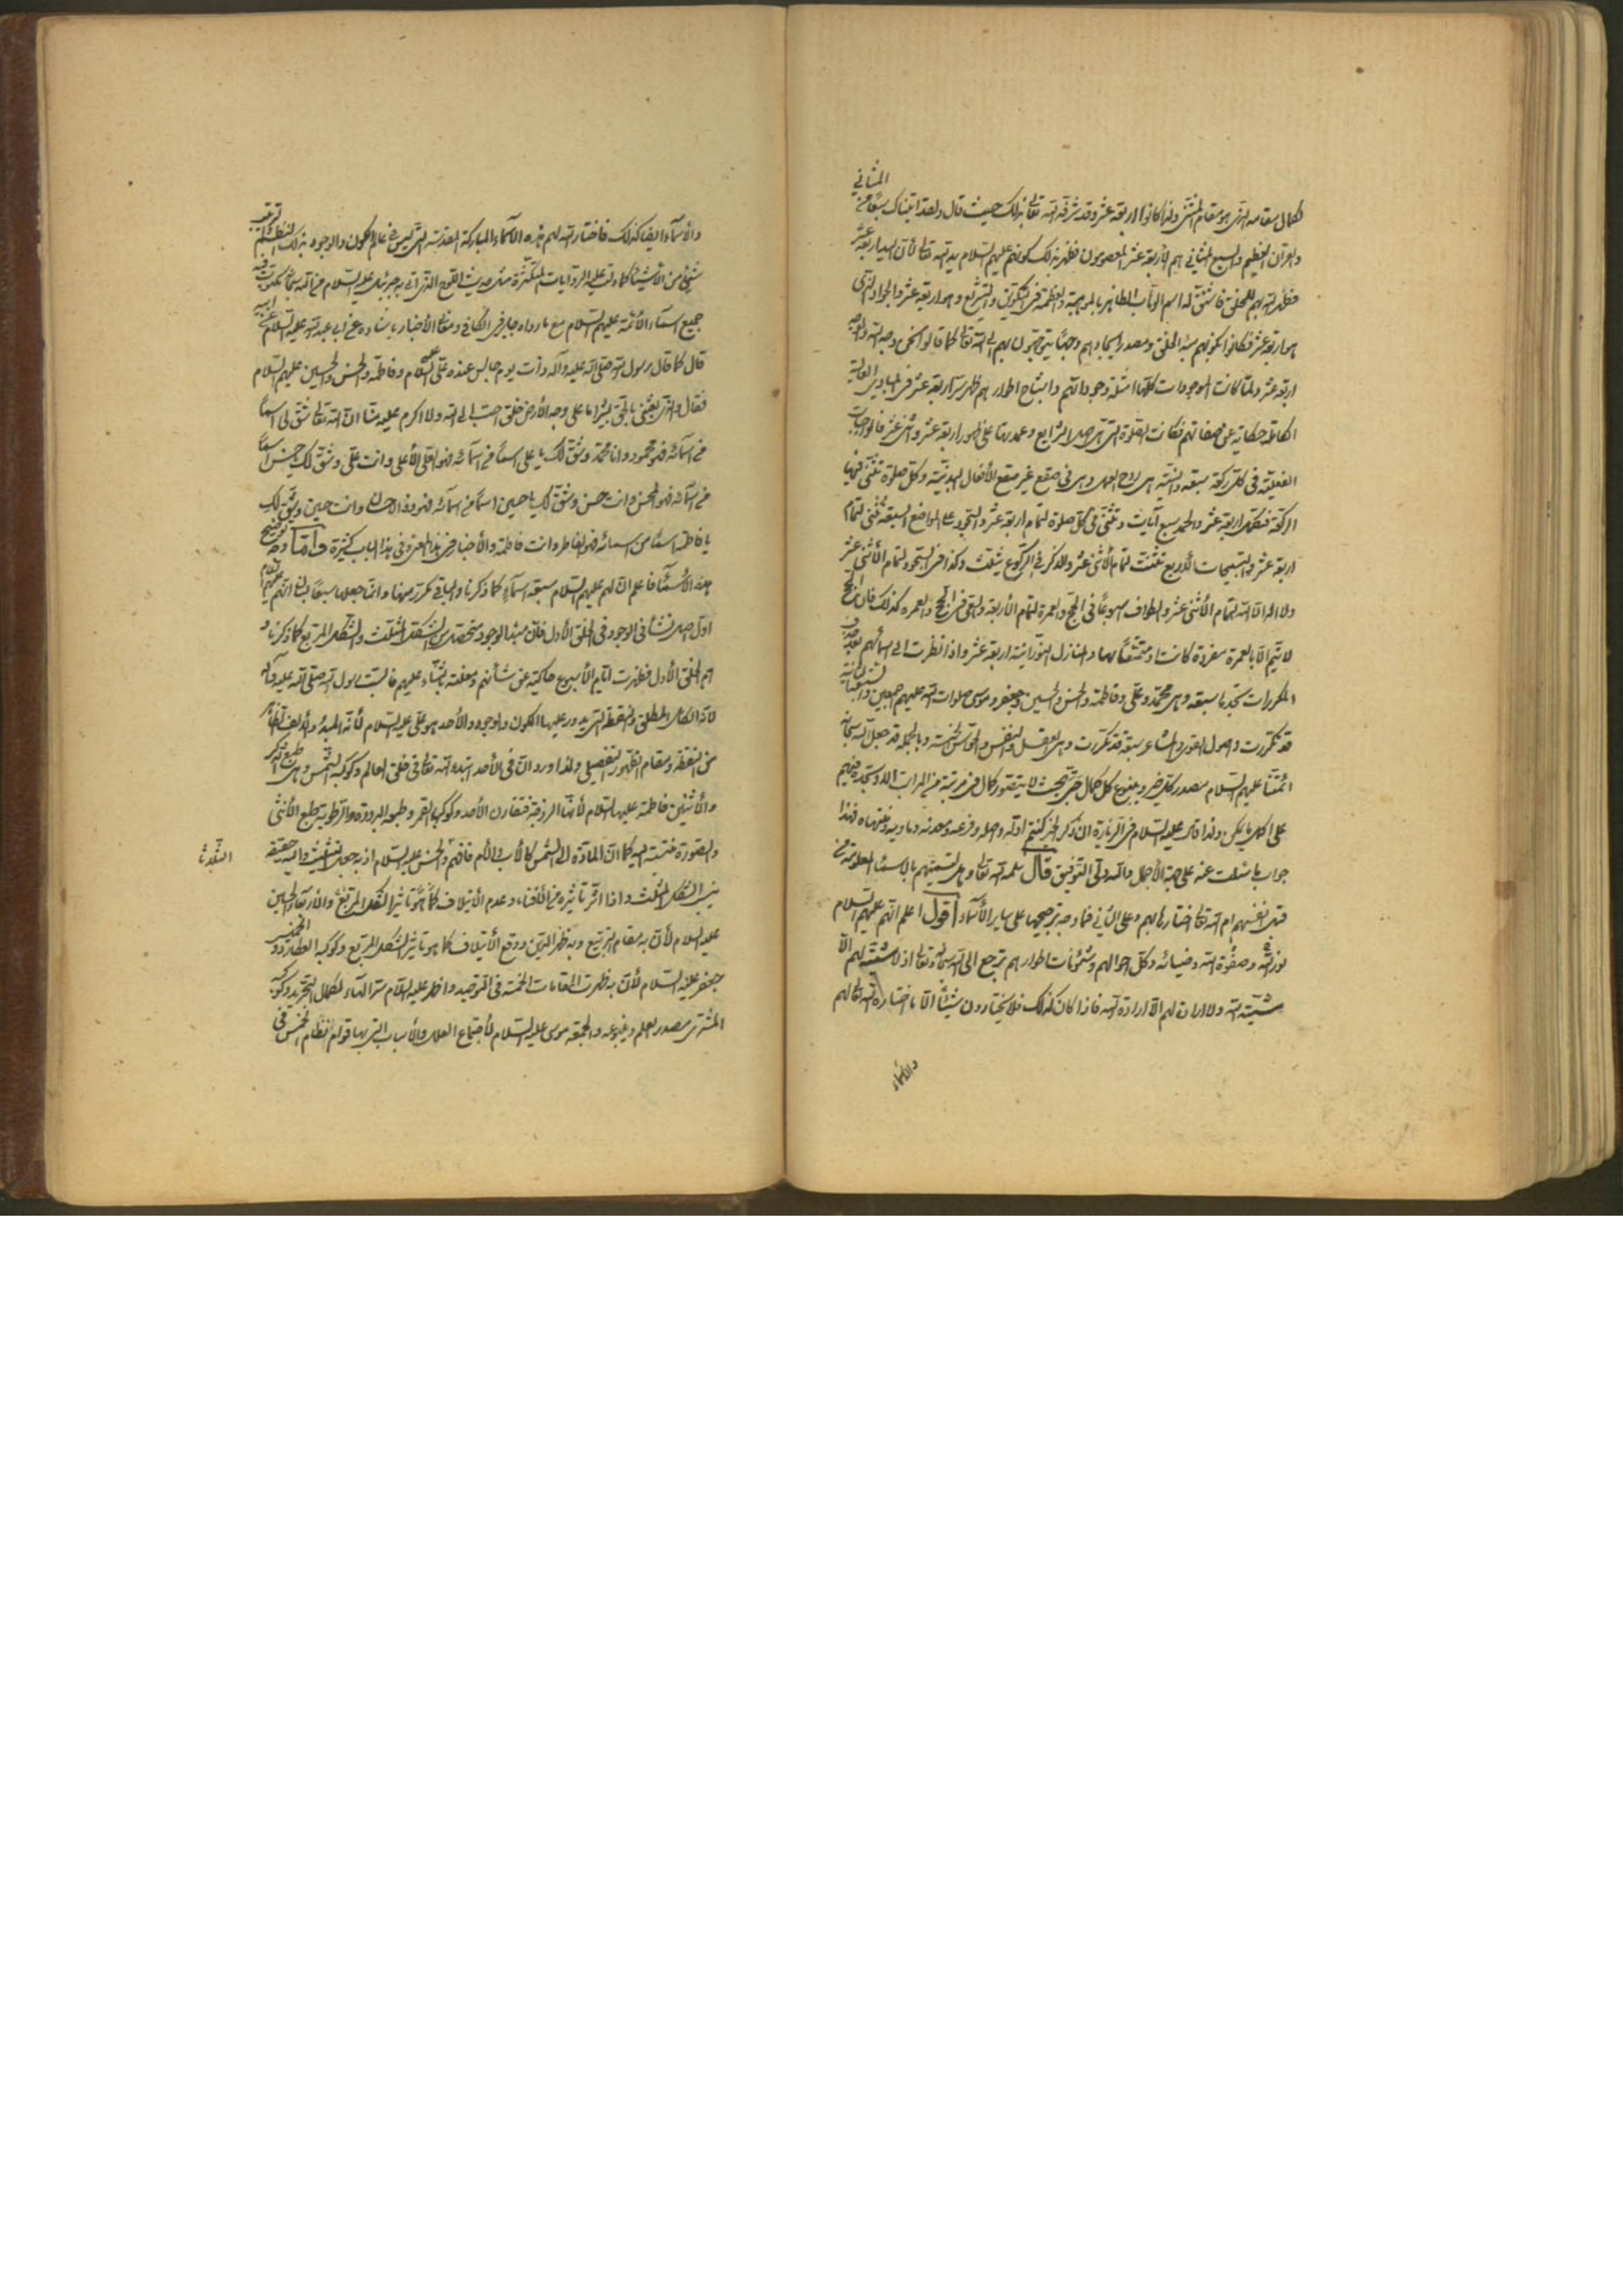 المثاني
لكمال مقامه الذي هو مقام المثنى ولذا كانوا اربعة عشر وقد شرفه الله تعالى بذلك حيث قال ولقد اتيناك سبعا من
والقران العظيم والسبع المثاني هم الأربعة عشر المعصومون فظهر بذلك كونهم عليهم السلام يد الله تعالى لأن اليد اربعة عشر
فظهر الله بهم للخلق فاشتق له اسم الوهاب الظاهر بالموهبة والعظمة في التكوين والتشريع وهو اربعة عشر والجواد الذي
هو اربعة عشر فكانوا لكونهم مبدء الخلق ومصدر ايجادهم وجها يتوجهون بهم الى الله تعالى كما قالوا نحن وجه الله والوجه
اربعة عشر ولما كانت الموجودات كلها امثلة وجوداتهم واشباح اطوارهم ظهر سر اربعة عشر في المبادي العالية
الكاملة حكاية عن صفاتهم فكانت الصلوة التي هي اصل الشرايع وعمدتها على ظهور اربعة عشر واثنى عشر فالواجبات
الفعلية في كل ركعة سبعة والنية هي روح العمل وهي في صقع غير صقع الأفعال البدنية وكل صلوة تثنى فيها
الركعة فتظهر اربعة عشر والحمد سبع آيات وتثنى في كل صلوة لتمام اربعة عشر والسجود على المواضع السبعة تثنى لتمام
اربعة عشر والتسبيحات الأربع تثلث لتمام الأثنى عشر والذكر في الركوع يثلث وكذا في السجود لتمام الأثنى عشر
ولا اله الا الله لتمام الأثنى عشر والطواف اسبوعا في الحج والعمرة لتمام الأربعة والسعي في الحج والعمرة كذلك فان الحج
لا يتم الا بالعمرة مفردة كانت او متمتعا بها والمنازل النورانية اربعة عشر واذا نظرت الى اسمائهم بعد حذف
المكررات تجدها سبعة وهي محمد وعلي وفاطمة والحسن والحسين وجعفر وموسى صلوات الله عليهم اجمعين والتسعة الباقية
قد تكررت واصول القوى والمشاعر سبعة قد تكررت وهي العقل والنفس والحواس الخمسة وبالجملة قد جعل الله سبحانه
ائمتنا عليهم السلام مصدر كل خير وينبوع كل كمال حتى بحيث لا يتصور كمال في مرتبة من المراتب الا وتجده فيهم
على اكمل ما يمكن ولذا قال عليه السلام في الزيارة ان ذكر الخير كنتم اوله واصله وفرعه ومعدنه ومأويه ومنتهاه فهذا
جواب ما سئلت عنه على جهة الأجمال والله ولي التوفيق قال سلمه الله تعالى وهل تسميتهم بالاسماء المعلومة من
قبل انفسهم ام الله تعالى اختارها لهم وعلى الثاني فما وجه ترجيحها على ساير الأسماء اقول اعلم انهم عليهم السلام
نور الله وصفوة الله وضيائه وكل احوالهم وشئونات اطوارهم ترجع الى الله سبحانه وتعالى اذ لا مشية لهم الا
مشية الله ولا ارادة لهم الا ارادة الله فاذا كان كذلك فلا يختارون شيئا الا ما اختاره الله تعالى لهم
والأسماء
والأسماء ايضا كذلك فاختار الله لهم هذه الأسماء المباركة المقدسة التي ليس في عالم الكون والوجود بذلك النظم
شيئ من الأشياء كما دلت عليه الروايات المتكثرة مثل حديث اللوح الذي اتى به جبرئيل عليه السلام من الله سبحانه مكتوب فيه
جميع اسماء الأئمة عليهم السلام مع ما رواه جابر في الكافي وفي معاني الأخبار باسناده عن ابي عبد الله عليه السلام عن ابيه
قال كما قال رسول الله صلى الله عليه وآله وذات يوم جالس عنده علي عليه السلام وفاطمة والحسن والحسين عليهم السلام
فقال والذي بعثني بالحق بشيرا ما على وجه الأرض خلق احب الى الله ولا اكرم عليه منا ان الله تعالى شق لي اسما
من اسمائه فهو محمود وانا محمد وشق لك يا علي اسما من اسمائه فهو العلي الأعلى وانت علي وشق لك يا حسن اسما
من اسمائه فهو المحسن وانت حسن وشق لك يا حسين اسما من اسمائه فهو ذو الاحسان وانت حسين وشق لك
يا فاطمة اسما من اسمائه فهو الفاطر وانت فاطمة والأخبار في هذا المعنى وفي هذا الباب كثيرة واما وجه ترجيح
هذه الأسماء فاعلم ان لهم عليهم السلام سبعة اسماء كما ذكرنا والباقي تكرر منها وانما جعلها سبعا لبيان انهم عليهم السلام
اول اصل نشأ في الوجود في الخلق الأول فان مبدء الوجود متحصل من الشكل المثلث والشكل المربع كما ذكرنا و
هم الخلق الأول فظهرت ايام الأسبوع حاكية عن شأنهم ومعلنة بالثناء عليهم فالسبت لرسول الله صلى الله عليه وآله
لأنه الكلي المطلق والنقطة التي يدور عليها الكون والوجود والأحد هو علي عليه السلام لأنه المبدء والألف الظاهر
من النقطة ومقام الظهور التفصيلي ولذا ورد ان في الأحد ابتدء الله تعالى في خلق العالم وكوكبه الشمس وهي طبع الذكر
والأثنين فاطمة عليها السلام لأنها الزوجة فتقارن الأحد وكوكبها القمر وطبعه البرودة والرطوبة طبع الأنثى
والصورة منتسبة اليه كما ان المادة الى الشمس كالأب والأم فافهم والحسن عليه السلام اذ به جعل التثليث واليه حقيقة
الثلثا
ينسب الشكل المثلث واذا اثر تأثيره من الأفناء وعدم الأيتلاف كما هو تأثير الشكل المربع والأربعا الحسين
عليه السلام لأن به مقام التربيع وبه ظهر الدين ووقع الأيتلاف كما هو تأثير الشكل المربع وكوكبه العطارد و الخميس
جعفر عليه السلام لأن به ظهرت المقامات الخمسة في التوحيد واظهر عليه السلام سر الهاء لكمال التجريد وكوكبه
المشتري مصدر العلم وينبوعه والجمعة موسى عليه السلام لأجتماع العلل والأسباب التي بها قوام انتظام الخمس في